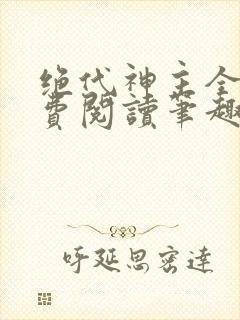 绝代神主全
费閱讀筆趣
呼延思密達